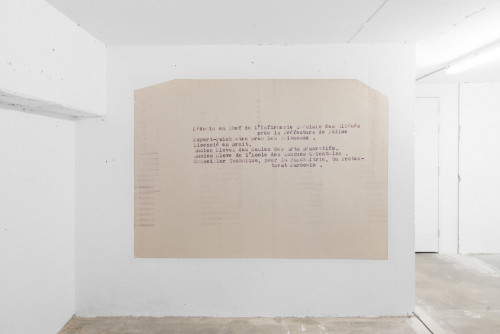 Médecin en Chef de l'Infirmerie Spéciale des Aliénés
près la Préfecture de Police
Expert-Psychiatre près les Tribunaux .
Licencié en Droit.
Ancien Elève des Ecoles des Arts Décoratifs.
Ancien Elève de l'Ecole des Langues Orientales .
Conseiller Technique, pour la Psychiatrie, du Protec-
torat Marocain .